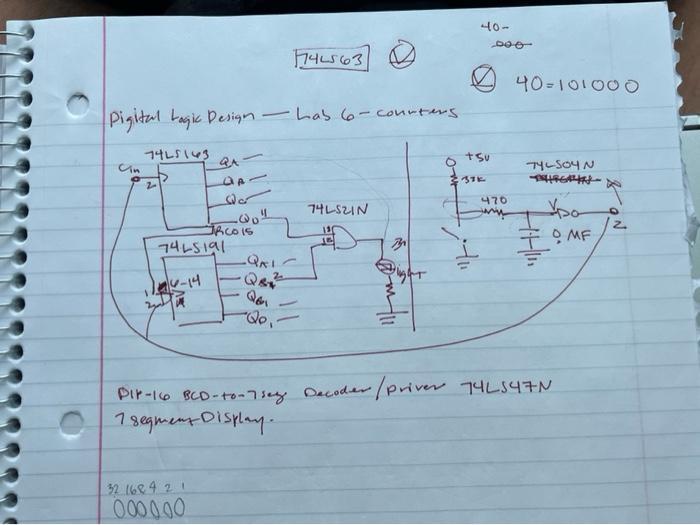 40-
000
74LS63
40=101000
Digital Logic Design — Lab 6 - counters
74LS163
QA
QB
QC
QD 11
RCO 15
Cin
2
+5V
33K
470
74LS04N
2
MF
74LS21N
light
74LS191
6-14
QA1
QB 2
QD1
DIP-16 BCD-to-7seg Decoder/Driver 74LS47N
7 segment Display.
32 16 8 4 2 1
000000